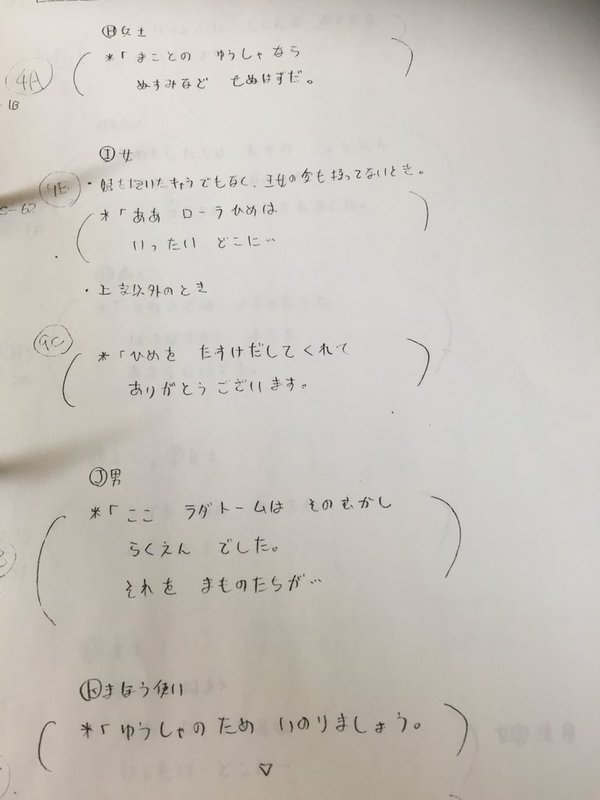 Ⓗ女士
*「まことの ゆうしゃなら
ぬすみなど せぬはずだ。
4A
1B
Ⓘ女
・姫を抱いたキャラでもなく、王女の金も持ってないとき。
4E
*「ああ ローラひめは
いったい どこに…
・上記以外のとき
9C
*「ひめを たすけだしてくれて
ありがとうございます。
Ⓙ男
*「ここ ラダトームは そのむかし
らくえん でした。
それを まものたちが…
Ⓚまほう使い
*「ゆうしゃのため いのりましょう。
▽